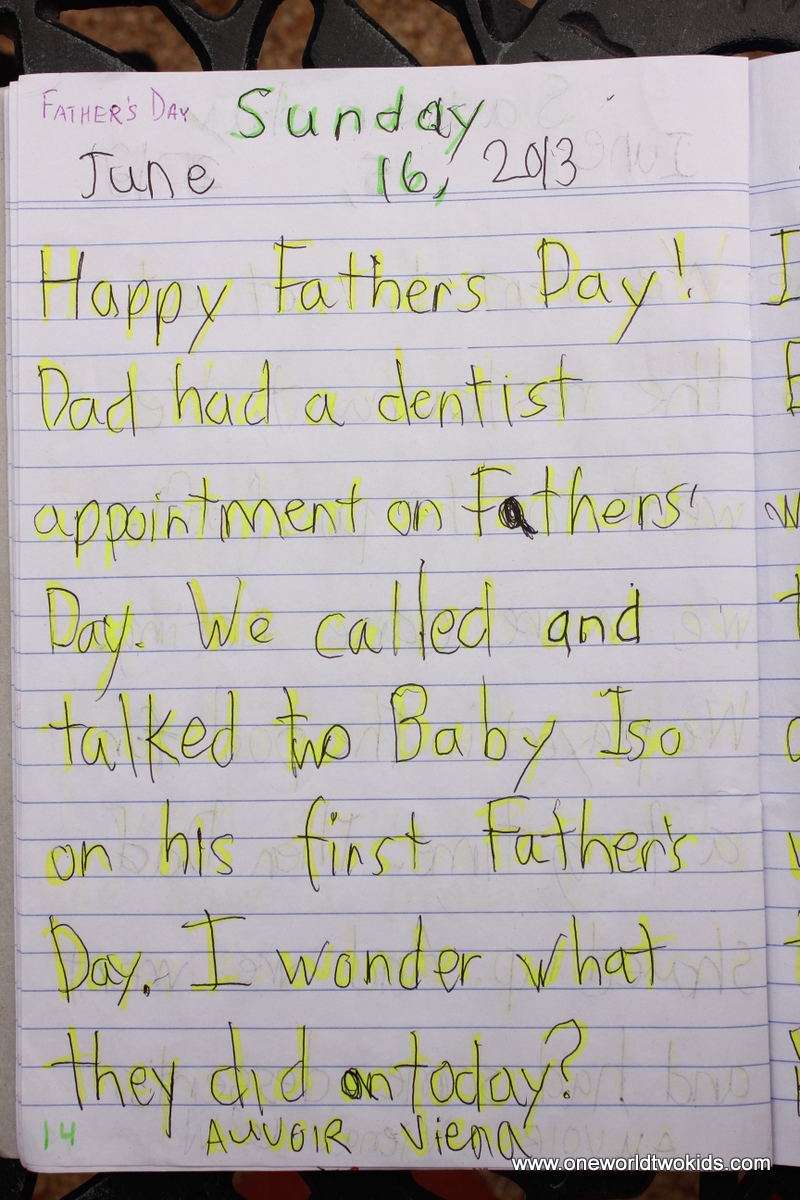 FATHER'S DAY Sunday
June 16, 2013
Happy Fathers Day!
Dad had a dentist
appointment on Fathers'
Day. We called and
talked to Baby Iso
on his first Father's
Day. I wonder what
they did on today?
14 AUVOIR Viena
www.oneworldtwokids.com